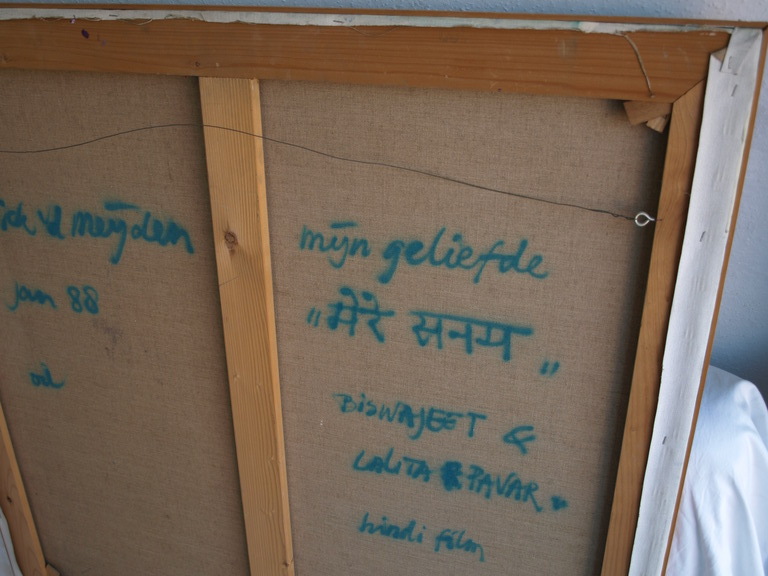 vd meijden
jan 88
oil
mijn geliefde
"मेरे सनम"
BISWAJEET &
LALITA PAVAR
hindi film